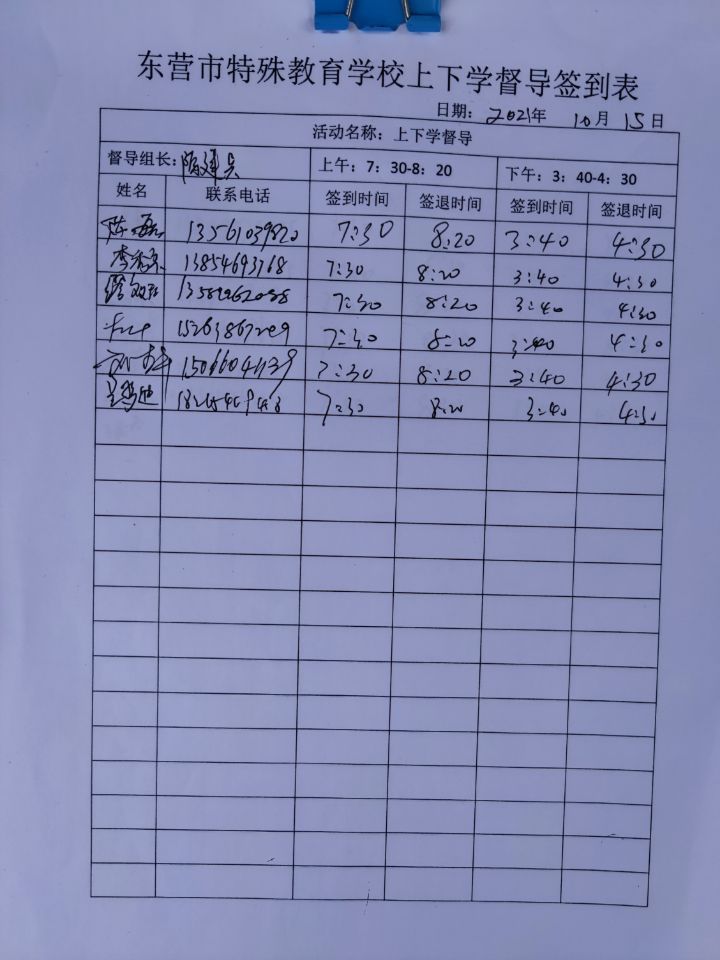 东营市特殊教育学校上下学督导签到表
日期：2021年 10月 15日
活动名称：上下学督导
督导组长： 上午：7：30-8：20 下午：3：40-4：30
姓名 联系电话 签到时间 签退时间 签到时间 签退时间
13561039820 7:30 8:20 3:40 4:30
13854693768 7:30 8:20 3:40 4:30
7:30 8:20 3:40 4:30
15263867209 7:30 8:20 3:40 4:30
7:30 8:20 3:40 4:30
7:30 8:20 3:40 4:30